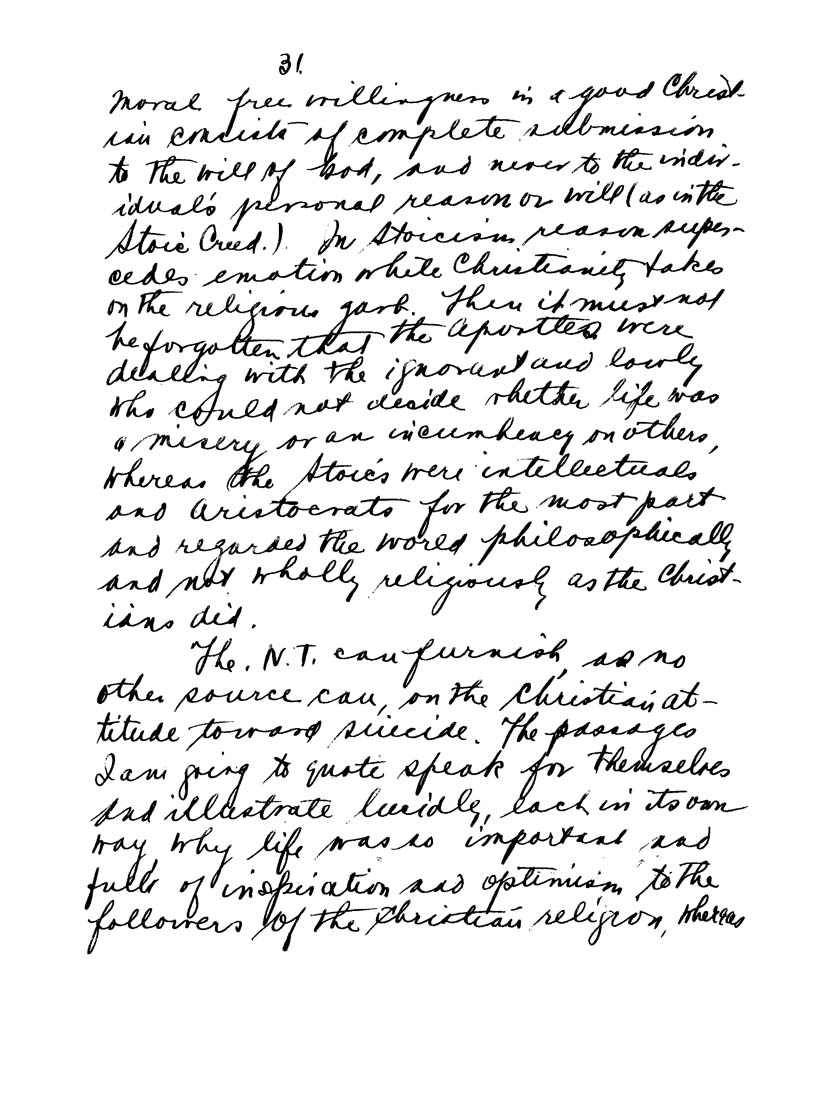 31.
Moral free willingness in a good Christ-
ian consists of complete submission
to the will of God, and never to the indiv-
idual's personal reason or will (as in the
Stoic Creed.). In Stoicism, reason super-
cedes emotion while Christianity takes
on the religious garb. Then it must not
be forgotten that the Apostles were
dealing with the ignorant and lowly
who could not decide whether life was
a misery or an incumbency on others,
whereas the Stoics were intellectuals
and aristocrats for the most part
and regarded the world philosophically
and not wholly religiously as the Christ-
ians did.
The N.T. can furnish, as no
other source can, on the Christian at-
titude toward suicide. The passages
I am going to quote speak for themselves
and illustrate lucidly, each in its own
way, why life was so important and
full of inspiration and optimism to the
followers of the Christian religion, whereas